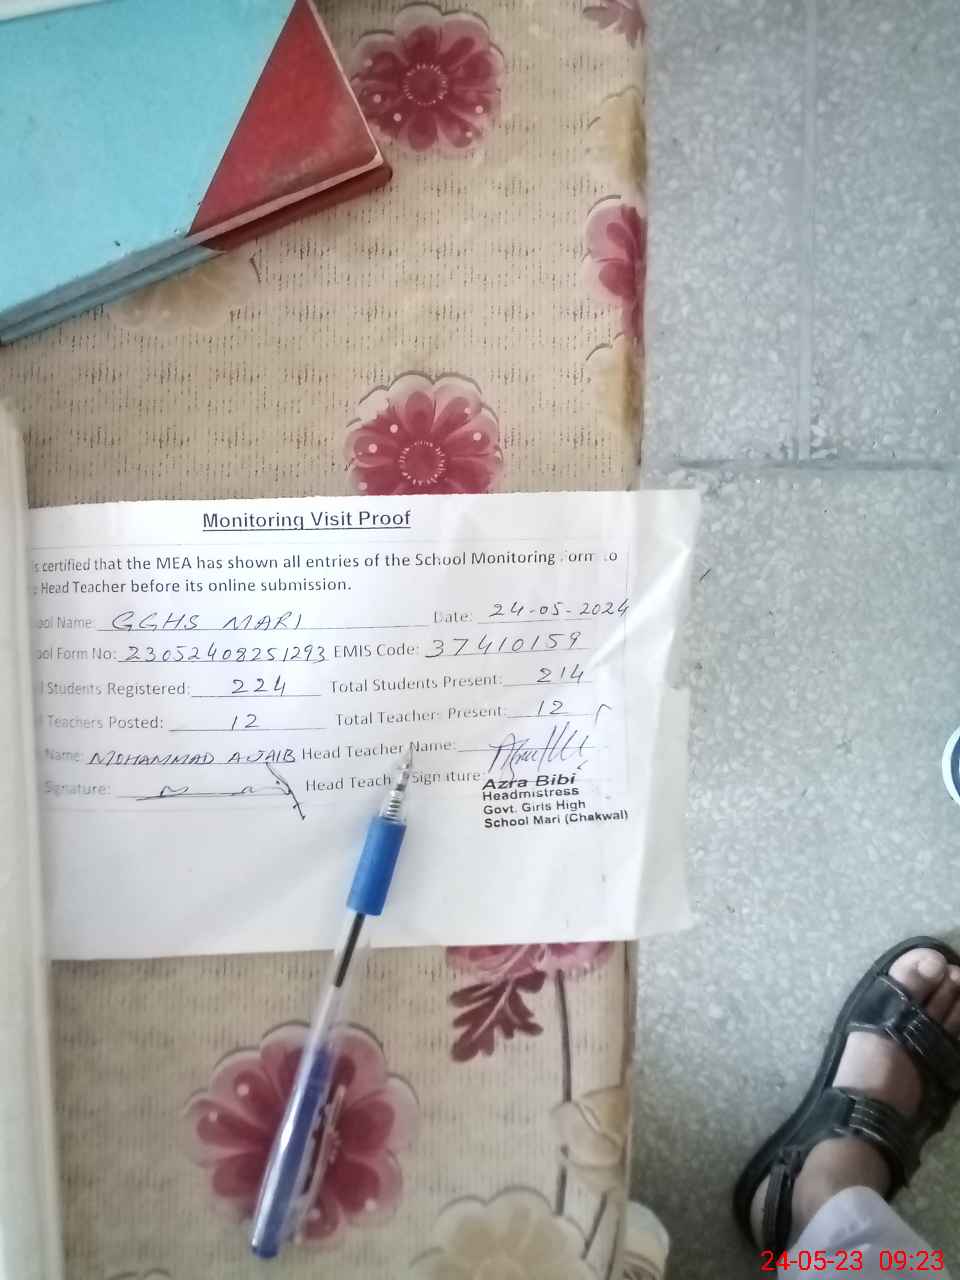 Monitoring Visit Proof
s certified that the MEA has shown all entries of the School Monitoring orm to
Head Teacher before its online submission.
ool Name: GGHS MARI Date: 24-05-2024
ool Form No: 23052408251293 EMIS Code: 37410159
l Students Registered: 224 Total Students Present: 214
Teachers Posted: 12 Total Teachers Present: 12
Name: MOHAMMAD AJAIB Head Teacher Name:
Signature: Head Teach Signature:
Azra Bibi
Headmistress
Govt. Girls High
School Mari (Chakwal)
24-05-23 09:23